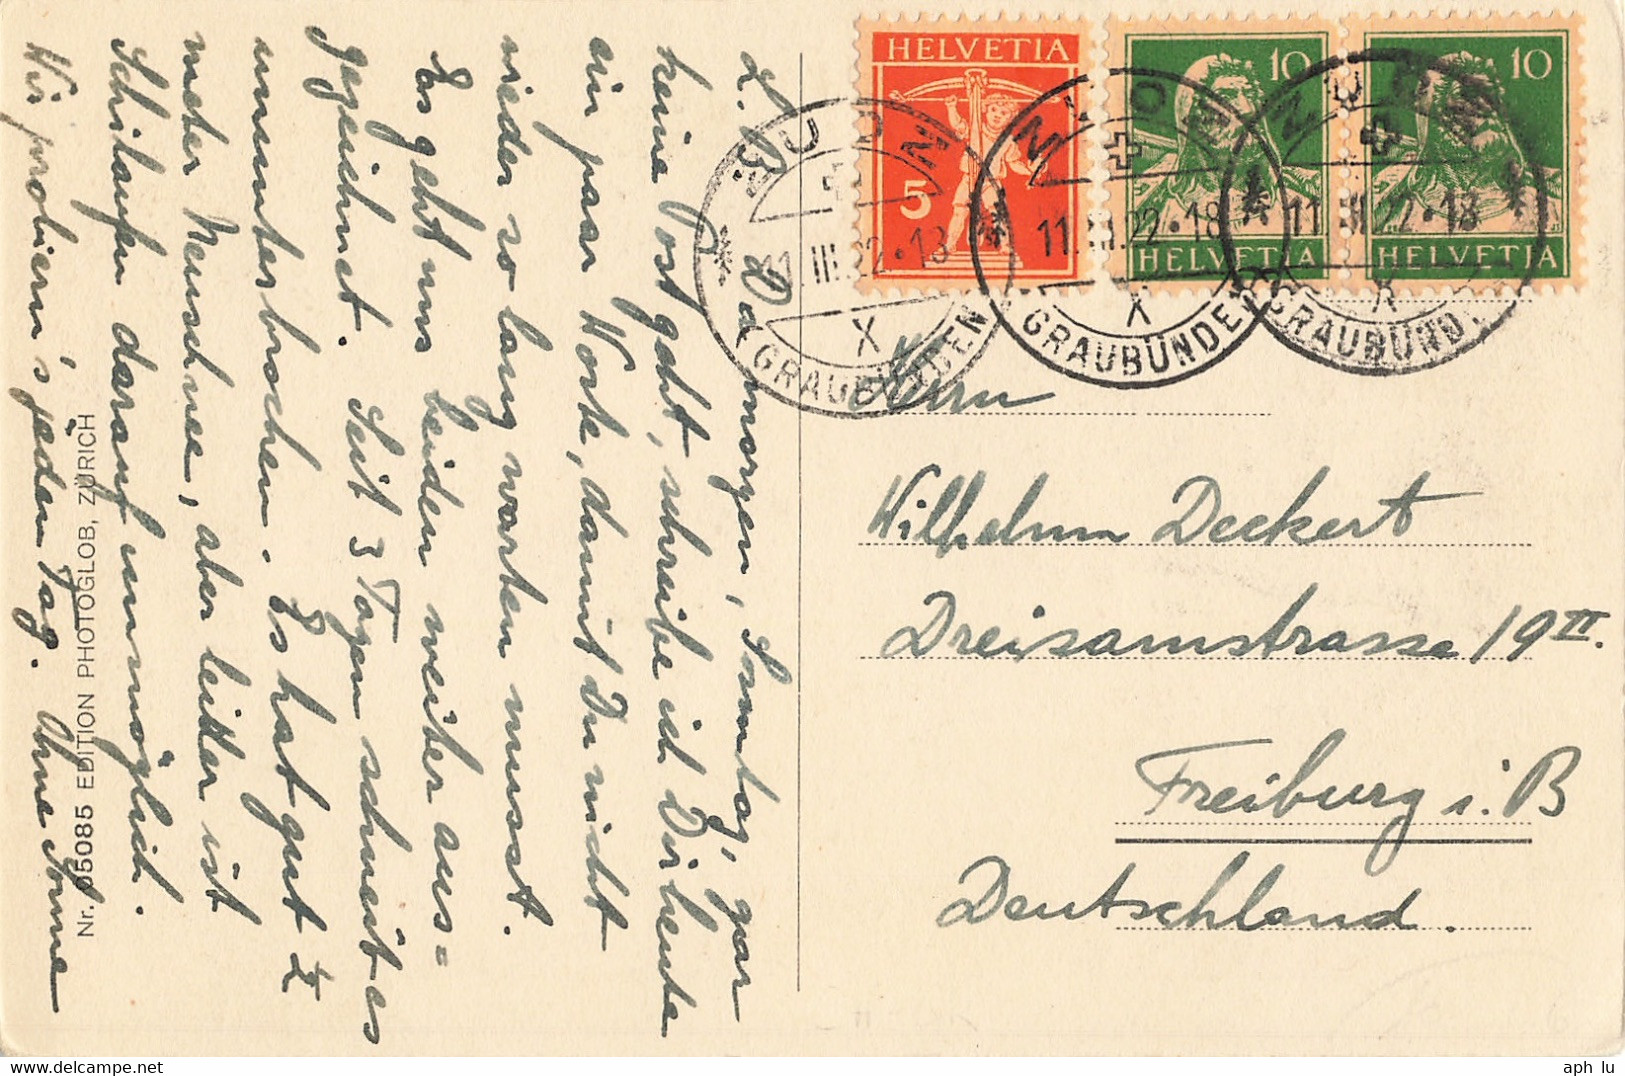 HELVETIA
5
10
HELVETIA
10
HELVETIA
11.III.22·18
11.III.22·18
11.III.22·18
X
X
X
GRAUBÜNDEN
GRAUBÜNDEN
GRAUBÜND.
L. B. Da morgen, Sonntag, gar
keine Post geht, schreibe ich Dir heute
ein paar Worte, damit Du nicht
wieder so lang warten musst.
Es geht uns beiden weiter aus=
gezeichnet. Seit 3 Tagen schneit es
ununterbrochen. Es hat gut ½
meter Neuschnee, aber leider ist
Schilaufen darauf unmöglich.
Wir probieren's jeden Tag. Ohne Sonne
Nr. 05085 EDITION PHOTOGLOB, ZÜRICH
Herrn
Wilhelm Deckert
Dreisamstrasse 19 II.
Freiburg i. B
Deutschland.
aph lu